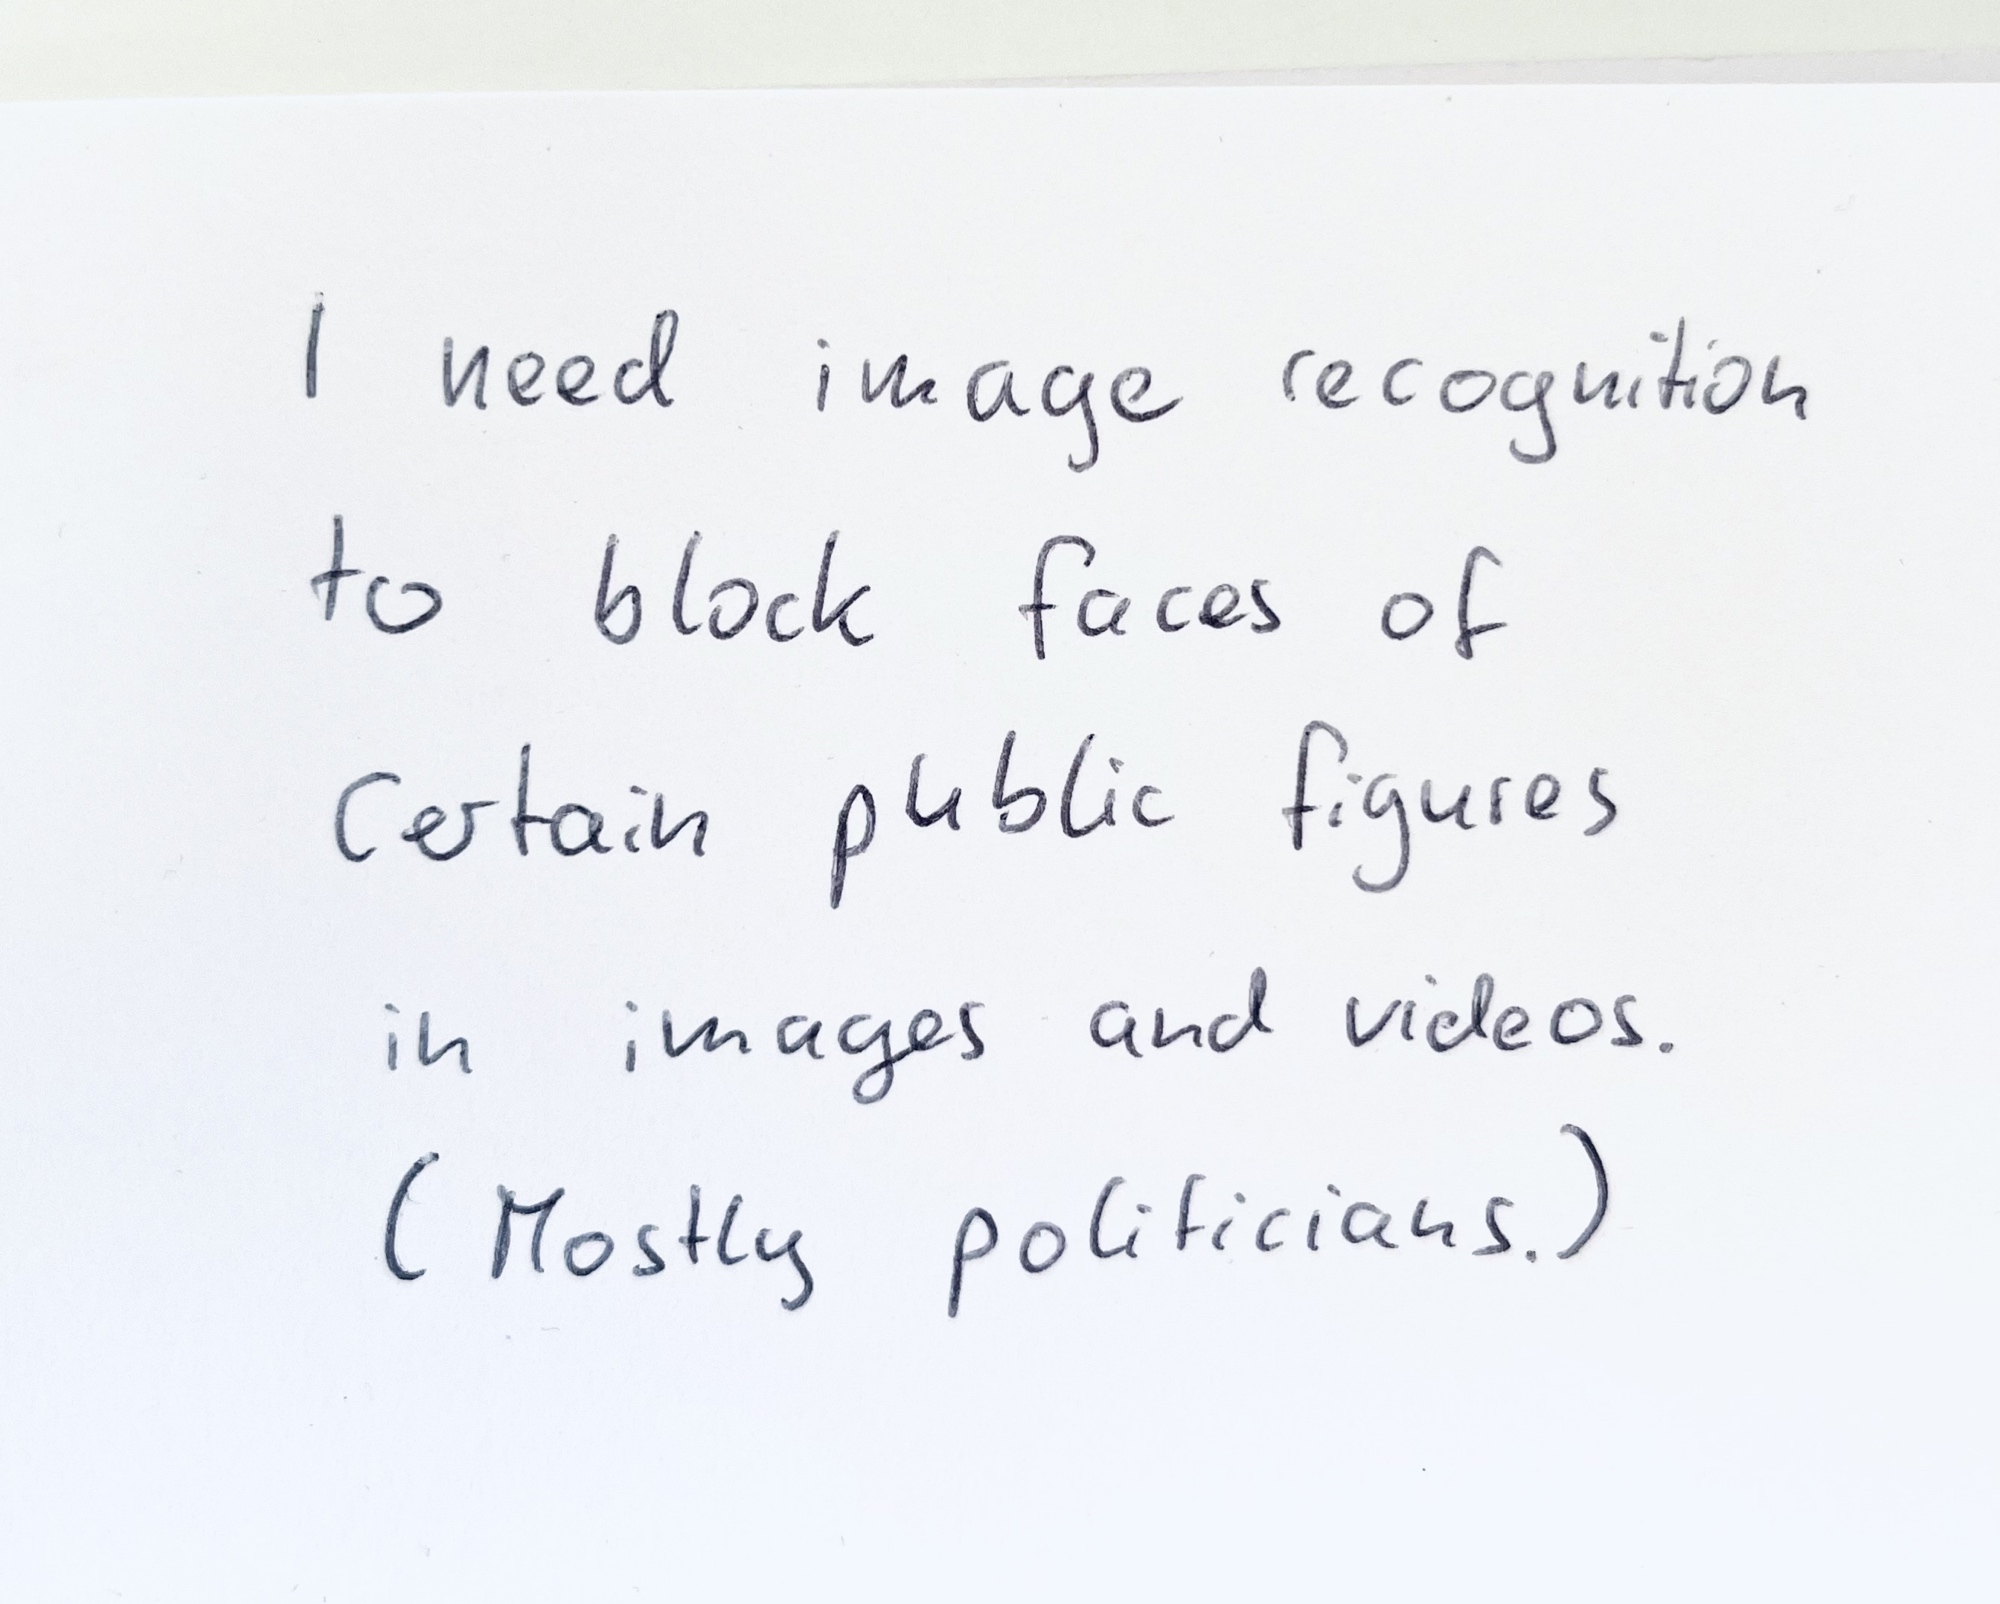 I need image recognition
to block faces of
certain public figures
in images and videos.
(Mostly politicians.)